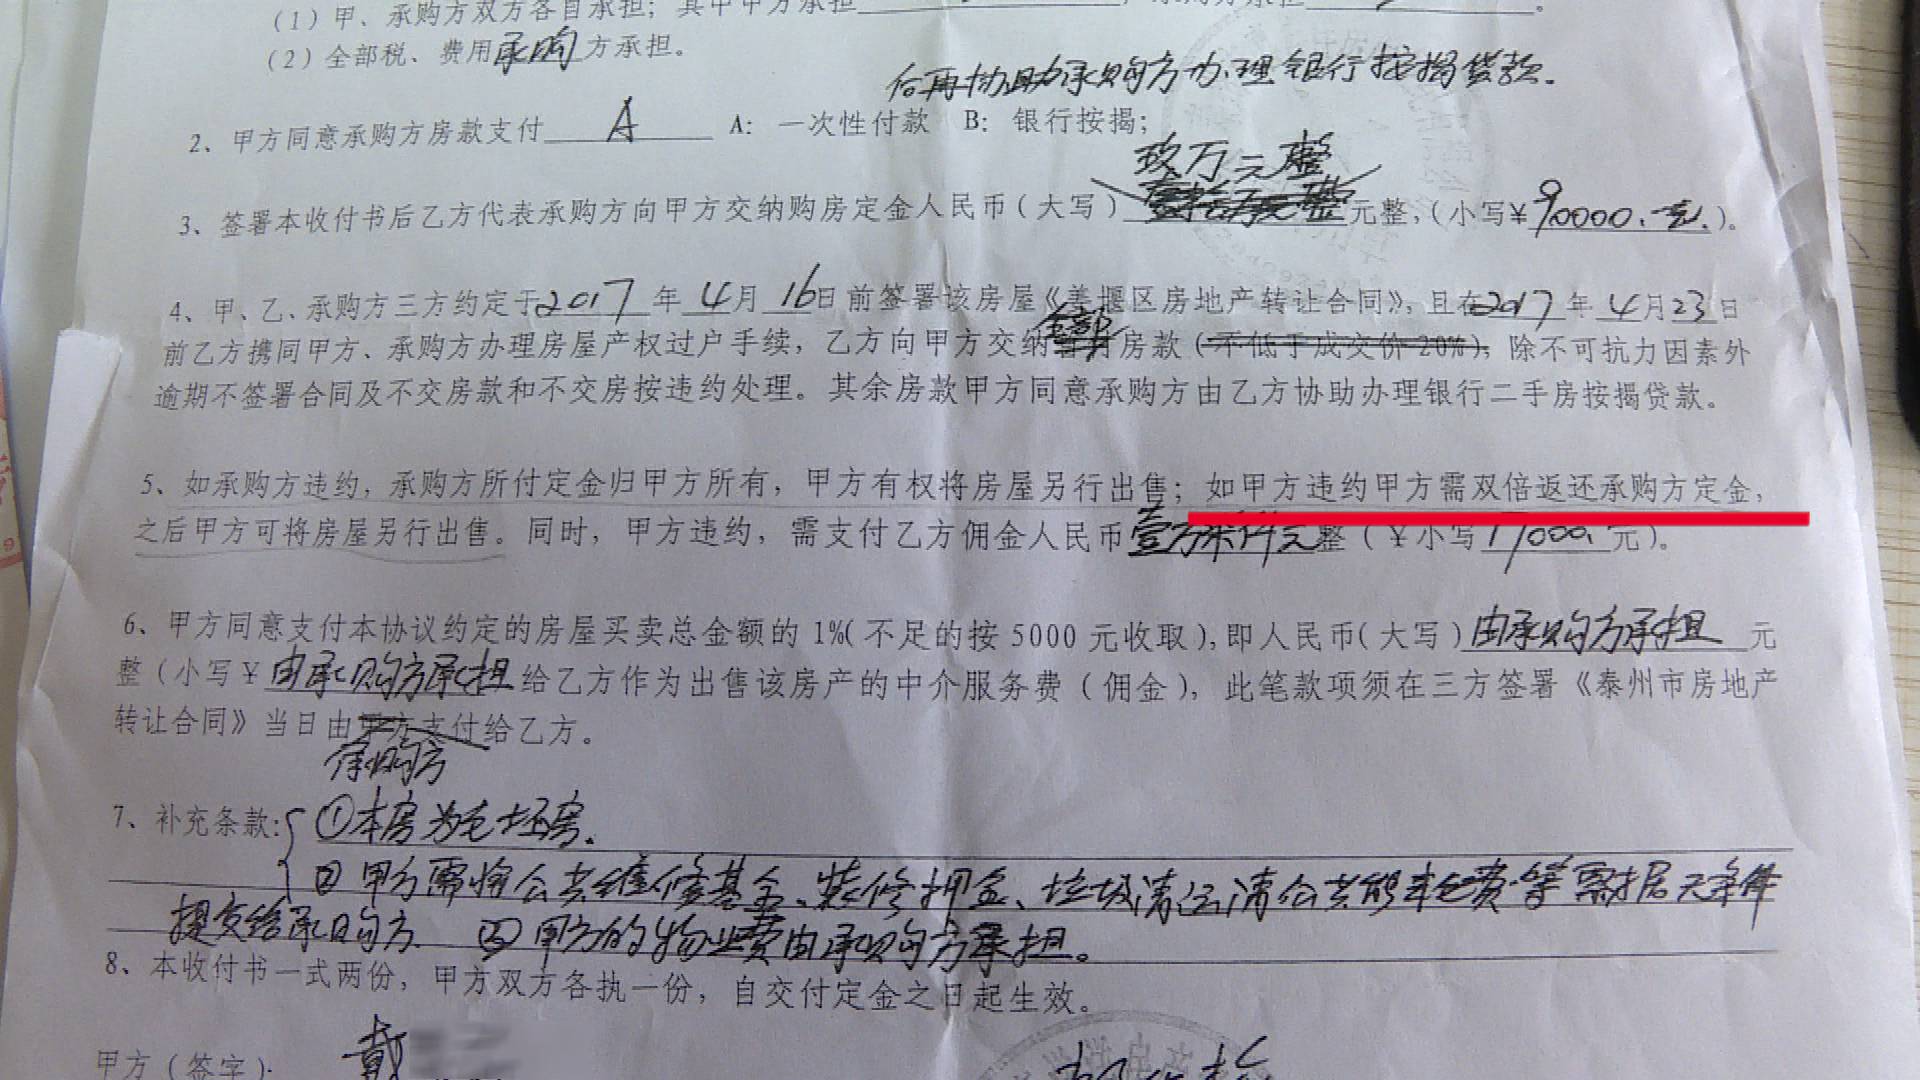 （1）甲、承购方双方各自承担；其中甲方承担
（2）全部税、费用承购方承担。
后再协助承购方办理银行按揭贷款.
2、甲方同意承购方房款支付 A A：一次性付款 B：银行按揭；
玖万元整
3、签署本收付书后乙方代表承购方向甲方交纳购房定金人民币（大写）元整，（小写￥90000.元.）。
4、甲、乙、承购方三方约定于2017年4月16日前签署该房屋《姜堰区房地产转让合同》，且在2017年4月23日
全部
前乙方携同甲方、承购方办理房屋产权过户手续，乙方向甲方交纳房款（不低于成交价20%），除不可抗力因素外
逾期不签署合同及不交房款和不交房按违约处理。其余房款甲方同意承购方由乙方协助办理银行二手房按揭贷款。
5、如承购方违约，承购方所付定金归甲方所有，甲方有权将房屋另行出售；如甲方违约甲方需双倍返还承购方定金，
之后甲方可将房屋另行出售。同时，甲方违约，需支付乙方佣金人民币壹万柒仟元整（￥小写17000.元）。
6、甲方同意支付本协议约定的房屋买卖总金额的1%（不足的按5000元收取），即人民币（大写）由承购方承担元
整（小写￥由承购方承担给乙方作为出售该房产的中介服务费（佣金），此笔款项须在三方签署《泰州市房地产
转让合同》当日由甲方支付给乙方。
承购方
7、补充条款：①本房为毛坯房.
②甲方需将公共维修基金、装修押金、垃圾清运清公共能耗费等票据无条件
提交给承购方. ③甲方的物业费由承购方承担。
8、本收付书一式两份，甲方双方各执一份，自交付定金之日起生效。
甲方（签字）：戴